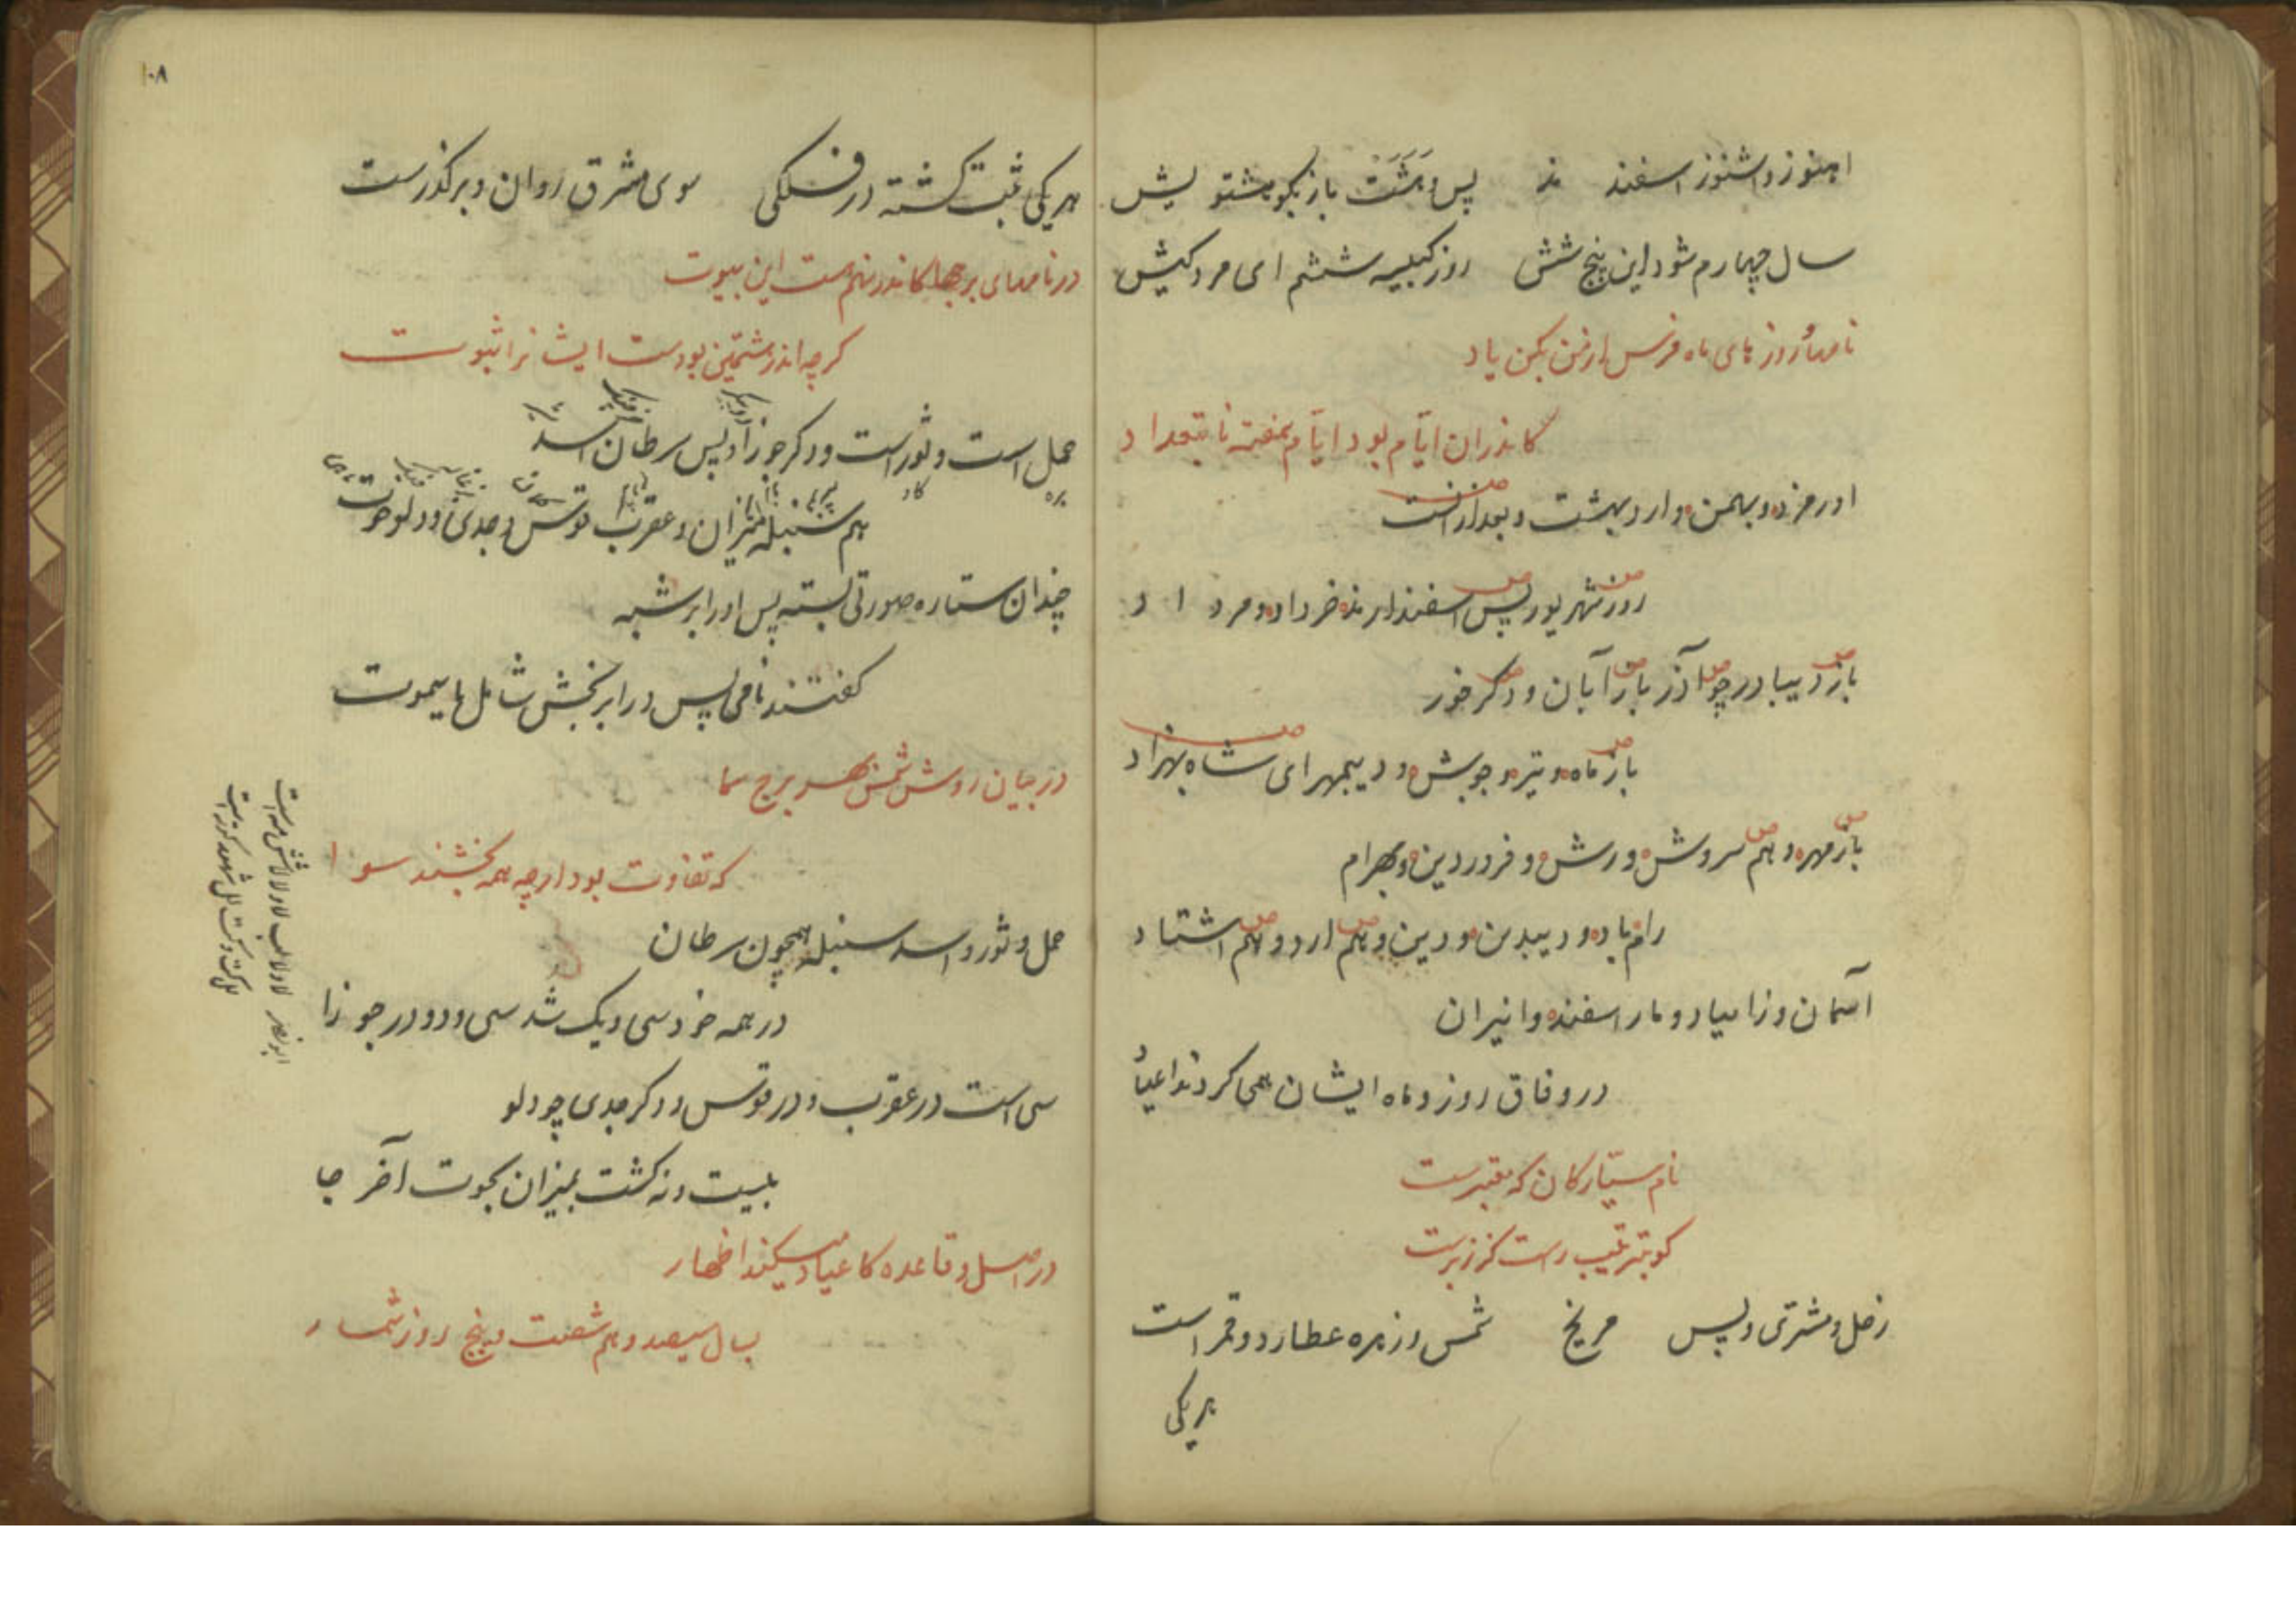 اهنوز و اشنوز اسفند مذ پس وهشت باز بگو هشتویش
سال چهارم شود این پنج شش روز کبیسه ششم ای مرد کیش
نامهاء روزهای ماه فرس از من بکن یاد
کاندران ایام بود ایام هفته نا بتعداد
اورمزد و بهمن و اردبهشت و بعد از انست
روز شهریور پس اسفندارمذ خرداد و مرداد
باز دیبادر چو آذر باز آبان و دکر خور
باز ماه و تیر و جوش و دیبمهر ای شاه بهزاد
باز مهر و هم سروش و رش و فروردین و بهرام
رام باد و دیبدین و دین و هم ارد و هم اشتاد
آسمان و زامیاد و مار اسفند و انیران
در وفاق روز و ماه ایشان همی کردند اعیاد
نام سیارکان که معتبرست
کو بترتیب رست کز زبرست
زحل و مشتری و پس مریخ شمس و زهره عطارد و قمر است
هریکی
۱۰۸
هریکی ثبت کشته در فلکی سوی مشرق روان و برکذرست
در نامهای برجها کاندر نهم هست این بیوت
کرچه اندر هشتمین بودست ایشانرا ثبوت
حمل است و ثور است و دکر جوزا و پس سرطان اسد
بره کاو
هم سنبله میزان و عقرب قوس و جدی و دلو حوت
چندان ستاره صورتی بسته پس اورا بر شبه
کفتند نامی پس در ابر بخش شامل با سموت
در بیان روش شمس بهر برج سما
که تفاوت بود ارچه همه بخشند سوا
حمل و ثور و اسد سنبله همچون سرطان
در همه خود سی و یک شد سی و دو در جوزا
سی است در عقرب و در قوس و دکر جدی چو دلو
بیست و نه کشت بمیزان بحوت آخر جا
در اصل و قاعده کاعیاد میکند اظهار
بسال سیصد و هم شصت و پنج روز شمار